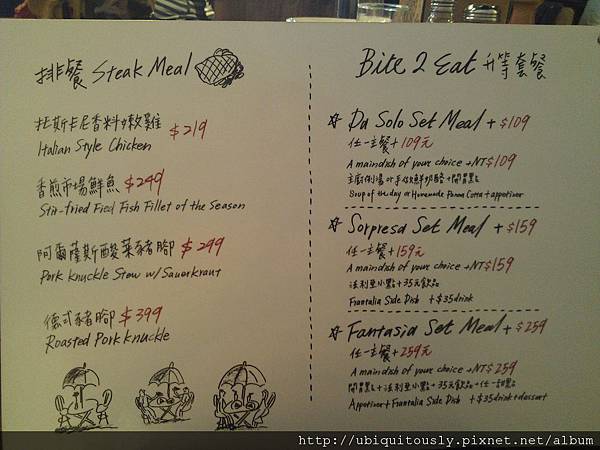 排餐 Steak Meal
托斯卡尼香料嫩雞 $219
Italian Style Chicken
香煎市場鮮魚 $249
Stir-fried Fied Fish Fillet of the Season
阿爾薩斯酸菜豬腳 $299
Pork Knuckle Stew w/ Sauerkraut
德式豬腳 $399
Roasted Pork Knuckle
Bite 2 Eat 升等套餐
☆ Da Solo Set Meal + $109
任一主餐+109元
A maindish of your choice +NT$109
主廚例湯 or 手做鮮奶酪+開胃點
Soup of the day or Homemade Panna Cotta + appetizer
☆ Sorpresa Set Meal + $159
任一主餐+159元
A maindish of your choice +NT$159
法利亞小點+35元飲品
Frantalia Side Dish + $35drink
☆ Fantasia Set Meal + $259
任一主餐+259元
A maindish of your choice +NT$259
開胃點+法利亞小點+35元飲品+任一甜點
Appetizer+Frantalia Side Dish + $35drink+dessert
http://ubiquitously.pixnet.net/album